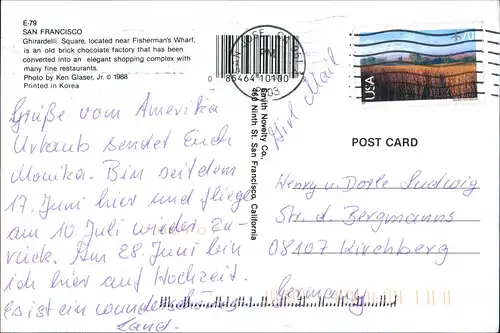 E-79
SAN FRANCISCO
Ghirardelli Square, located near Fisherman's Wharf,
is an old brick chocolate factory that has been
converted into an elegant shopping complex with
many fine restaurants.
Photo by Ken Glaser, Jr. © 1988
Printed in Korea
0 85464 10100
SAN JOSE
PM
70
USA
Smith Novelty Co.,
460 Ninth St. San Francisco, California
Air Mail
POST CARD
Grüße vom Amerika
Urlaub sendet Euch
Monika. Bin seit dem
17. Juni hier und fliege
am 10. Juli wieder zu-
rück. Am 28. Juni bin
ich hier auf Hochzeit.
Es ist ein wunderschönes
Land.
Henry u. Dorle Ludwig
Str. d. Bergmanns
08107 Kirchberg
Germany